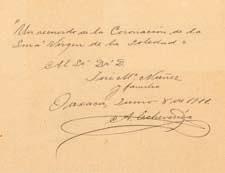 "Un recuerdo de la Coronación de la
Sma Virgen de la Soledad"
Al Sr. Dr. D.
José Ma. Núñez
y familia
Oaxaca, Enero 8 de 19
A. Echeverría